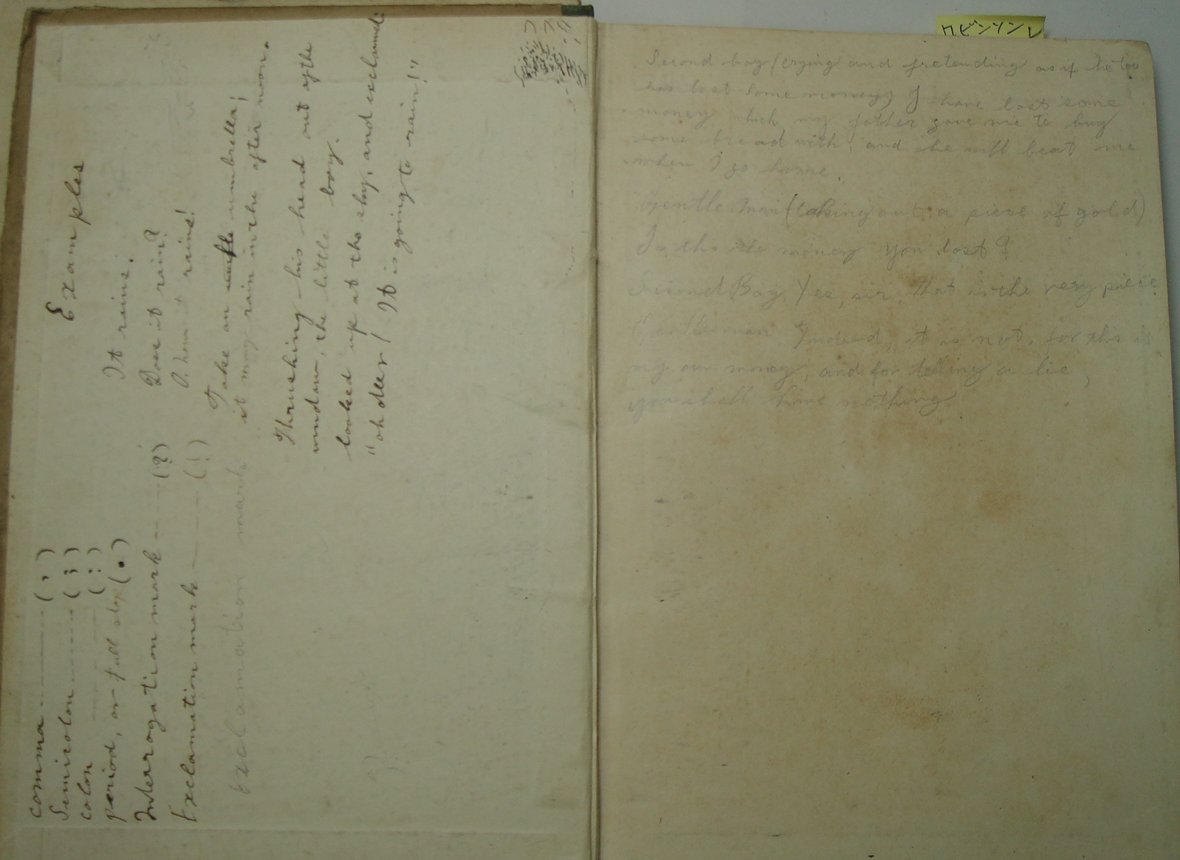 comma ------ (,)
Semicolon ------ (;)
colon ------ (:)
period, or full stop (.)
Interrogation mark --- (?)
Exclamation mark ------ (!)
Exclamation mark
Examples
It rains.
Does it rain?
O, how it rains!
Take an umbrella!
it may rain in the after noon.
Thrushing his head out of the
window, the little boy.
looked up at the sky, and exclaimed:
"oh deer! It is going to rain!"
ロビンソン
Second boy (crying and pretending as if he too
has lost some money) I have lost some
money which my father gave me to buy
some bread with, and she will beat me
when I go home.
Gentle man (taking out a piece of gold)
Is this the money you lost?
Second Boy Yes, sir, that is the very piece
Gentleman Indeed, it is not, for this is
my own money, and for telling a lie,
you shall have nothing.